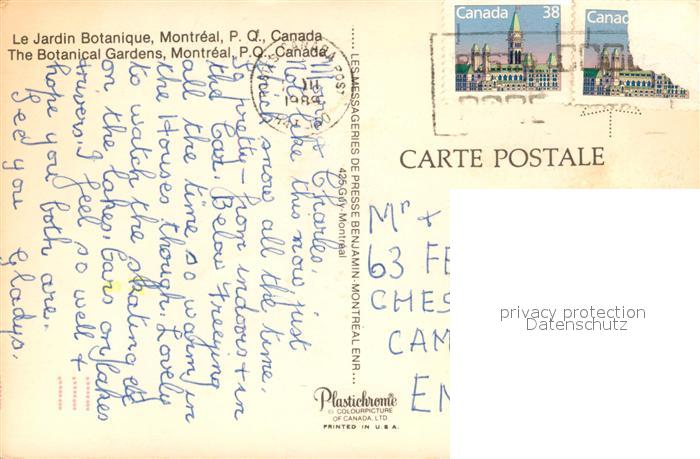 Le Jardin Botanique, Montréal, P. Q., Canada
The Botanical Gardens, Montréal, P.Q., Canada
Charles,
Not like this now just
thick snow all the time.
pretty - from indoors & in
the Car. Below Freezing
all the time so warm in
the Houses though. Lovely
to watch the skating etc
on the lakes. Cars on lakes
I feel so well &
hope you both are.
you Gladys.
LES MESSAGERIES DE PRESSE BENJAMIN-MONTREAL ENR.
425 Guy-Montréal
Canada 38
Canad
1989
CARTE POSTALE
Mr &
63 FE
CHES
CAM
EN
privacy protection
Datenschutz
Plastichrome
© COLOURPICTURE
OF CANADA, LTD.
PRINTED IN U.S.A.